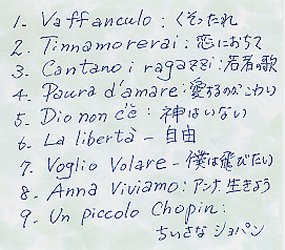 1- Vaffanculo : くそったれ
2- Tinnamorerai : 恋におちて
3- Cantano i ragazzi : 若者の歌
4- Paura d'amare : 愛するのがこわい
5- Dio non c'è : 神はいない
6- La libertà - 自由
7- Voglio Volare - 僕は飛びたい
8- Anna Viviamo : アンナ、生きよう
9- Un piccolo Chopin :
ちいさな ショパン